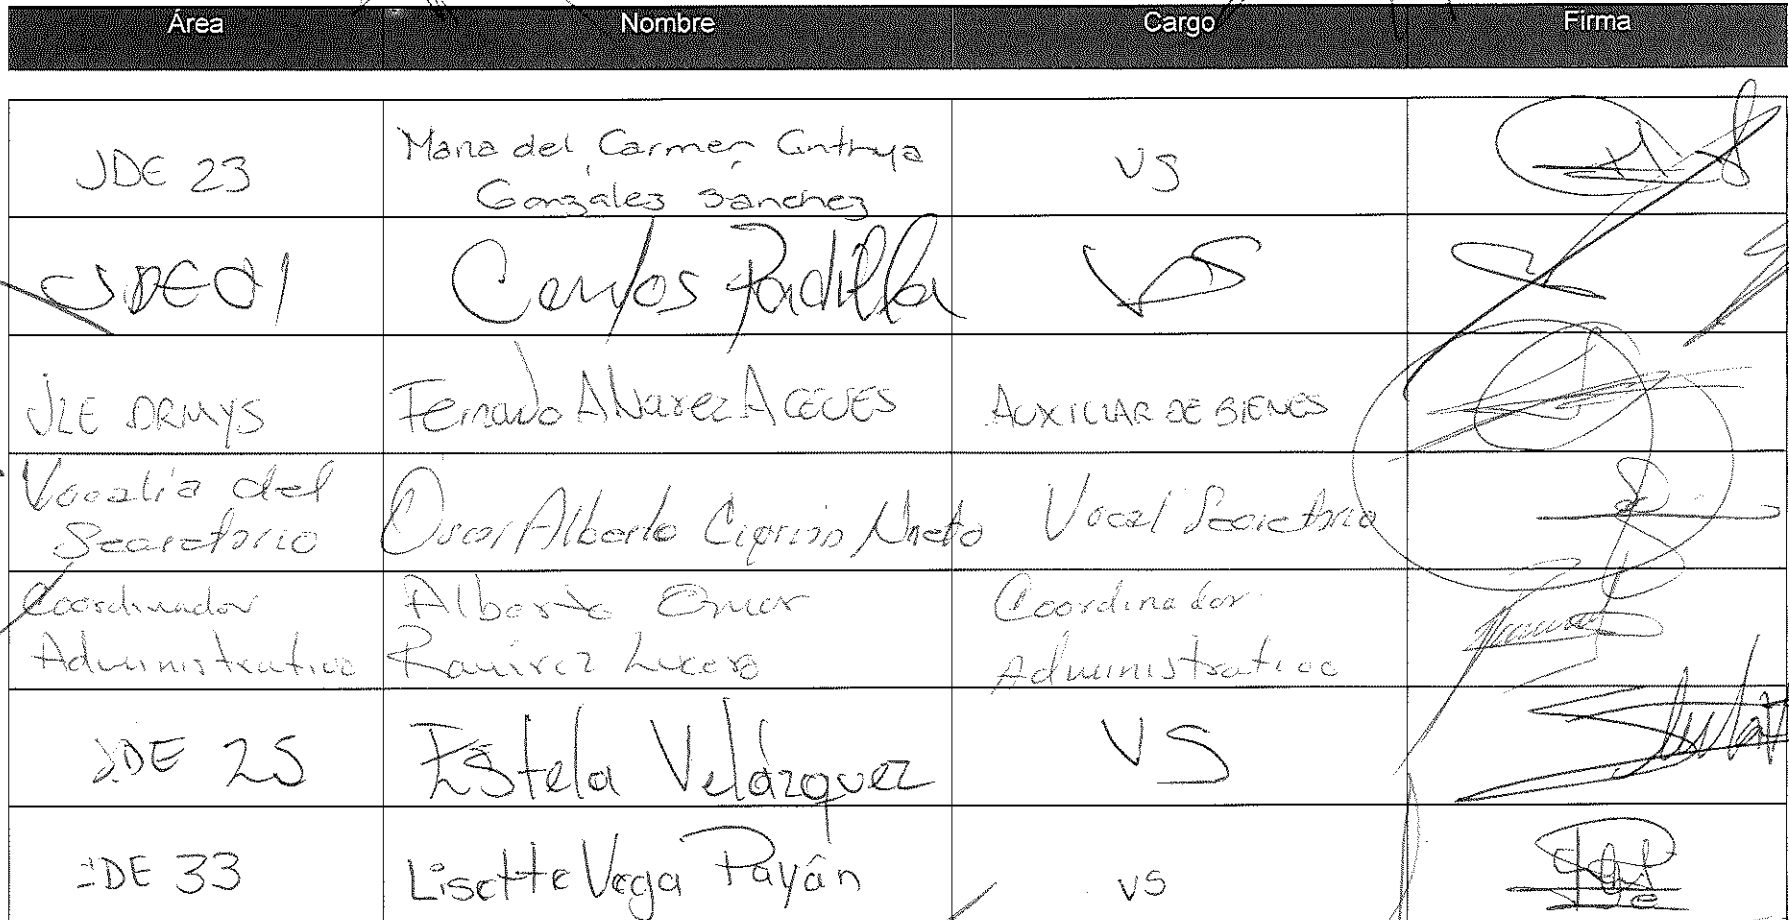 Área Nombre Cargo Firma
JDE 23 Maria del Carmen Cinthya González Sánchez VS
JDE 01 Carlos Padilla VS
JLE DRMYS Fernando Alvarez ACEVES AUXILIAR DE BIENES
Vocalía del Secretario Oscar Alberto Ciprián Nieto Vocal Secretario
Coordinador Administrativo Alberto Omar Ramírez Lucero Coordinador Administrativo
JDE 25 Estela Velázquez VS
JDE 33 Lisette Vega Payán VS